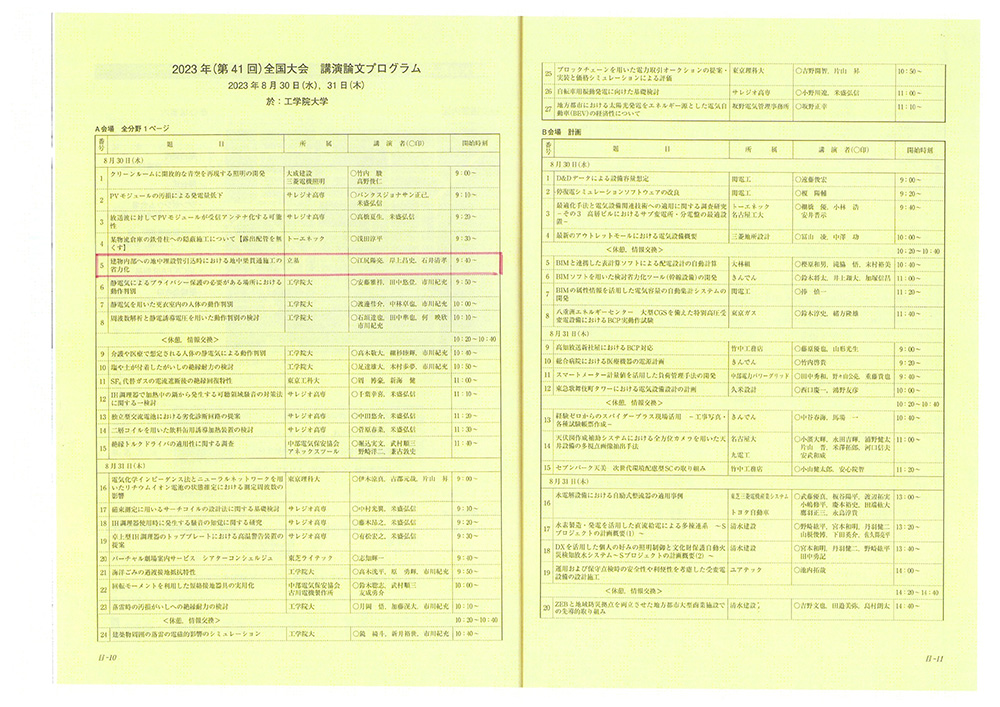 2023年(第41回)全国大会　講演論文プログラム
2023年8月30日(水)、31日(木)
於：工学院大学
A会場　全分野1ページ
番号　題　目　所　属　講　演　者(○印)　開始時刻
8月30日(水)
1　クリーンルームに開放的な青空を再現する照明の開発　大成建設　○竹内　駿　9：00～
三菱電機照明　高野俊仁
2　PVモジュールの汚損による発電量低下　サレジオ高専　9：10～
米盛弘信
3　放送波に対してPVモジュールが受信アンテナ化する可能性　サレジオ高専　○高橋夏生，米盛弘信　9：20～
4　某物流倉庫の鉄骨柱への隠蔽施工について【露出配管を無くす】　トーエネック　○浅田淳平　9：30～
5　建物内部への地中埋設管引込時における地中梁貫通施工の省力化　立基　○江尻陽亮，岸上昌史，石井清孝　9：40～
6　静電気によるプライバシー保護の必要がある場所における動作判別　工学院大　○安藤雅
　田中悠登，市川紀充　9：50～
7　静電気を用いた更衣室内の人体の動作判別　工学院大　○渡邊倖介，中林卓也，市川紀充　10：00～
8　周波数解析と静電誘導電圧を用いた動作判別の検討　工学院大　10：10～
市川紀充
＜休憩，情報交換＞　10：20～10：40
9　介護や医療で想定される人体の静電気による動作判別　工学院大　市川紀充　10：40～
10　塩や土が付着したがいしの絶縁耐力の検討　工学院大　○足達雄大，木村泰夢，市川紀充　10：50～
11　SF₆代替ガスの電流遮断後の絶縁回復特性　東京工科大　○周　裕豪，新海　健　11：00～
12　IH調理器で加熱中の鍋から発生する可聴領域騒音の対策法に関する一検討　サレジオ高専　○千葉幸喜，米盛弘信　11：10～
13　独立型交流電池における劣化診断回路の提案　サレジオ高専　○中田悠介，米盛弘信　11：20～
14　二層コイルを用いた飲料缶用誘導加熱装置の検討　サレジオ高専　○菅原春菜，米盛弘信　11：30～
15　絶縁トルクドライバの適用性に関する調査　中部電気保安協会　○堀込実文，武村順三　11：40～
アネックスツール　野崎洋二，兼古敦史
8月31日(木)
16　電気化学インピーダンス法とニューラルネットワークを用いたリチウムイオン電池の状態推定における測定周波数の影響　東京理科大　○伊木涼真，吉郡元哉，片山　昇　9：00～
17　磁束測定に用いるサーチコイルの設計法に関する基礎検討　サレジオ高専　○中村光翼，米盛弘信　9：10～
18　IH調理器使用時に発生する騒音の知覚に関する研究　サレジオ高専　○藤本昂之，米盛弘信　9：20～
19　卓上型IH調理器のトッププレートにおける高温警告装置の提案　サレジオ高専　○有松宏之，米盛弘信　9：30～
20　バーチャル劇場案内サービス　シアターコンシェルジュ　東芝ライテック　○志知輝一　9：40～
21　海洋ごみの過渡接地抵抗特性　工学院大　○高木洸平，原　勇輝，市川紀充　9：50～
22　回転モーメントを利用した短絡接地器具の実用化　中部電気保安協会　○鈴木聡志，武村順三　10：00～
古川電機製作所　友成勇介
23　落雷時の汚損がいしへの絶縁耐力の検討　工学院大　○月岡　悟，加藤茂大，市川紀充　10：10～
＜休憩，情報交換＞　10：20～10：40
24　建築物周囲の落雷の電磁的影響のシミュレーション　工学院大　新井裕世，市川紀充　10：40～
II-10
25　ブロックチェーンを用いた電力取引オークションの提案・実装と価格シミュレーションによる評価　東京理科大　○吉野開智，片山　昇　10：50～
26　自転車用振動発電に向けた基礎検討　サレジオ高専　○小野川遼，米盛弘信　11：00～
27　地方都市における太陽光発電をエネルギー源とした電気自動車(BEV)の経済性について　坂野電気管理事務所　○坂野正幸　11：10～
B会場　計画
番号　題　目　所　属　講　演　者(○印)　開始時刻
8月30日(水)
1　D&Dデータによる設備容量想定　関電工　○遠藤俊宏　9：00～
2　停復電シミュレーションソフトウェアの改良　関電工　○榎　陽輔　9：20～
3　最適化手法と電気設備関連技術への適用に関する調査研究－その3　高層ビルにおけるサブ変電所・分電盤の最適設置－　トーエネック　○棚橋　優，小林　浩　9：40～
名古屋工大　安井晋示
4　最新のアウトレットモールにおける電気設備概要　三菱地所設計　○冨山　凌，中澤　功　10：00～
＜休憩，情報交換＞　10：20～10：40
5　BIMと連携した表計算ソフトによる配電設計の自動計算　大林組　○樫原和男，滝脇　悟，米村裕美　10：40～
6　BIMソフトを用いた検討省力化ツール(幹線設備)の開発　きんでん　○鈴木将太，井上雄大，加塚信昌　11：00～
7　BIMの属性情報を活用した電気容量の自動集計システムの開発　関電工　○棒　慎一　11：20～
8　八重洲エネルギーセンター　大型CGSを備えた特別高圧受変電設備におけるBCP実動作試験　東京ガス　○鈴木淳史，緒方隆雄　11：40～
8月31日(木)
9　高知放送新社屋におけるBCP対応　竹中工務店　○藤原優也，山形光生　9：00～
10　総合病院における医療機器の電源計画　きんでん　○竹内啓貴　9：20～
11　スマートメーター計量値を活用した負荷管理手法の開発　中部電力パワーグリッド　○田中秀和，野々山公亮，重藤貴也　9：40～
12　東急歌舞伎町タワーにおける電気設備設計の計画　久米設計　○西口慶一，鴻野友彦　10：00～
＜休憩，情報交換＞　10：20～10：40
13　経験ゼロからのスパイダープラス現場活用　－工事写真・各種試験帳票作成－　きんでん　○中谷春海，馬場　一　10：40～
14　天伏図作成補助システムにおける全方位カメラを用いた天井設備の多視点画像抽出手法　名古屋大　○小濱大輝，永田吉輝，浦野健太　11：00～
片山　晋，米澤拓郎，河口信夫
九電工　安武和成
15　セブンパーク天美　次世代環境配慮型SCの取り組み　竹中工務店　○小山健太郎，安心院智　11：20～
8月31日(木)
16　水電解設備における自励式整流器の適用事例　東芝三菱電機産業システム　○武藤優良，板谷陽平，渡辺祐実　13：00～
トヨタ自動車　鷹羽正三，永島淳貴
17　水素製造・発電を活用した直流給電による多棟連系　～Sプロジェクトの計画概要(1)～　清水建設　○野崎絃平，宮本和明，月詰健二　13：20～
山根俊博，下田英介，佐久間亮平
18　DXを活用した個人の好みの照明制御と文化財保護自動火災検知放水システム～Sプロジェクトの計画概要(2)～　清水建設　○宮本和明，月詰健二，野崎絃平　13：40～
田中勇記
19　運用および保守点検時の安全性や利便性を考慮した受変電設備の設計施工　ユアテック　○池内拓哉　14：00～
＜休憩，情報交換＞　14：20～14：40
20　ZEBと地域防災拠点を両立させた地方都市大型商業施設での先導的取り組み　清水建設　○吉野文也，田邉美弥，高村朗太　14：40～
II-11